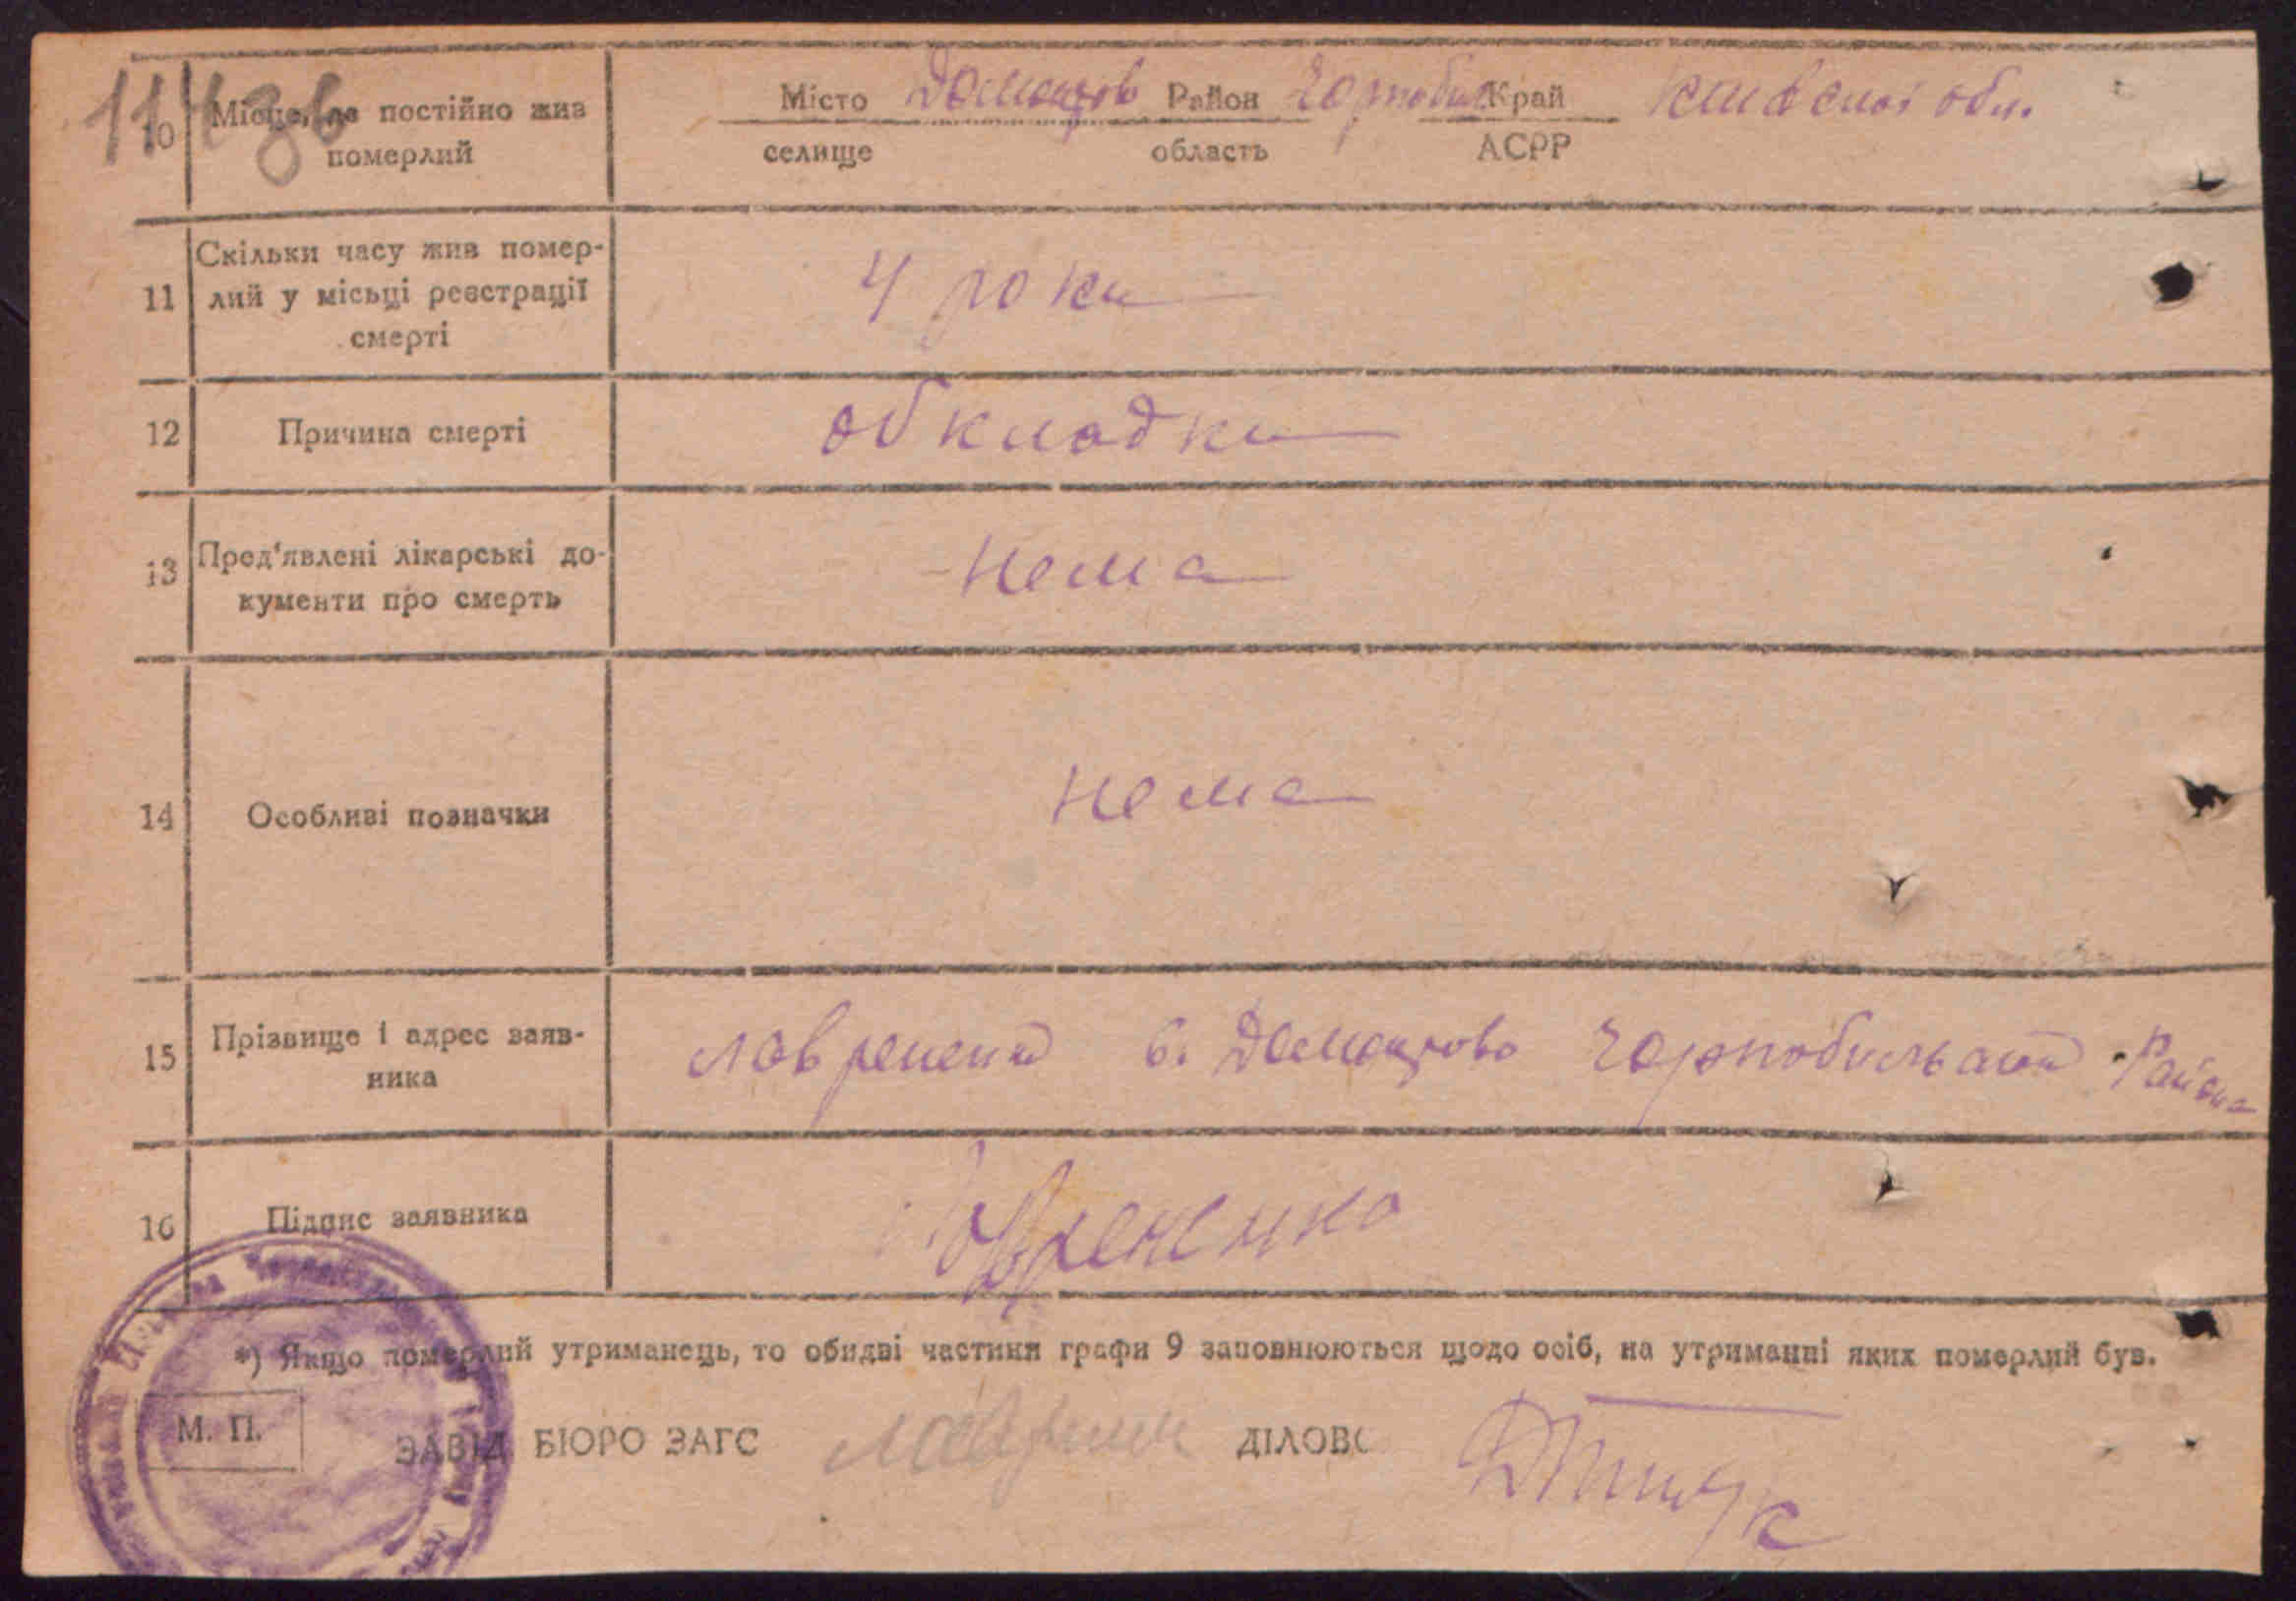 114 зв
10 Місце, де постійно жив померлий
Місто Домантов Район Чорнобил Край Київської обл.
селище область АСРР
11 Скільки часу жив помер-
лий у місьці реєстрації
смерті
4 роки
12 Причина смерті обкладки
13 Пред'явлені лікарські до-
кументи про смерть
нема
14 Особливі позначки нема
15 Прізвище і адрес заяв-
ника
с. Домантово Чорнобильський Района
16 Підпис заявника Лаврененко
*) Якщо померлий утриманець, то обидві частини графи 9 заповнюються щодо осіб, на утриманні яких померлий був.
М. П.
ЗАВІД БЮРО ЗАГС ДІЛОВ